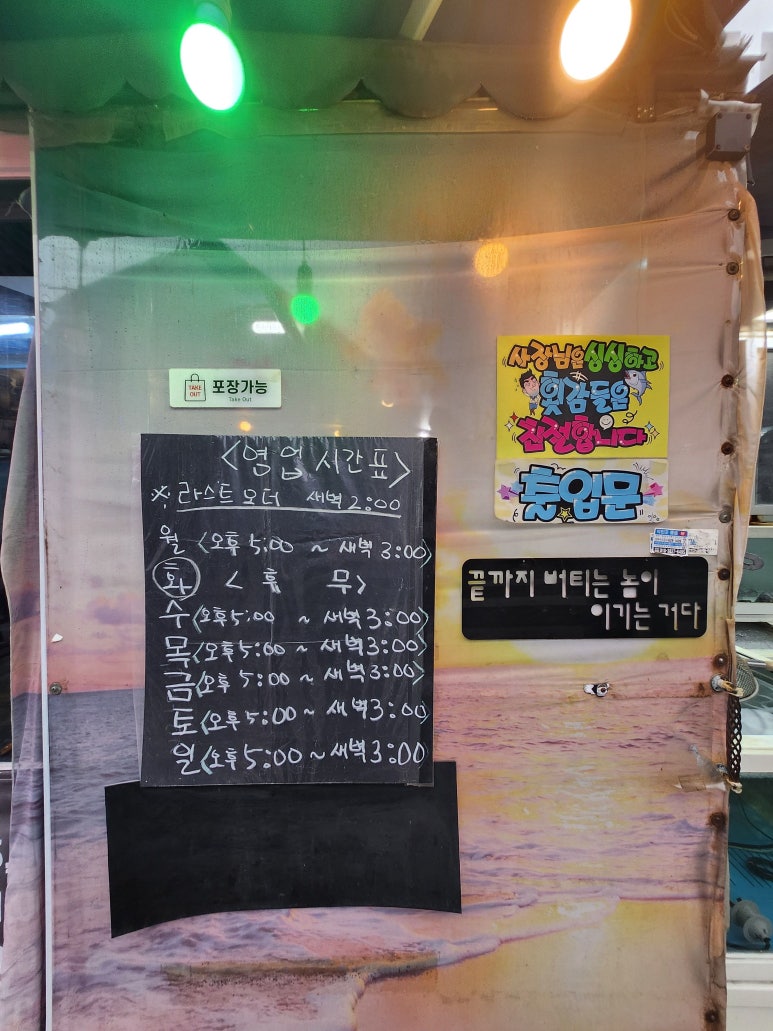 TAKE OUT
포장가능
Take Out
<영업시간표>
※ 라스트오더 새벽 2:00
월 <오후 5:00 ~ 새벽 3:00>
화 < 휴 무>
수 <오후 5:00 ~ 새벽 3:00>
목 <오후 5:00 ~ 새벽 3:00>
금 <오후 5:00 ~ 새벽 3:00>
토 <오후 5:00 ~ 새벽 3:00>
일 <오후 5:00 ~ 새벽 3:00
사장님은 싱싱하고
횟감들은
친절합니다
출입문
끝까지 버티는 놈이
이기는 거다